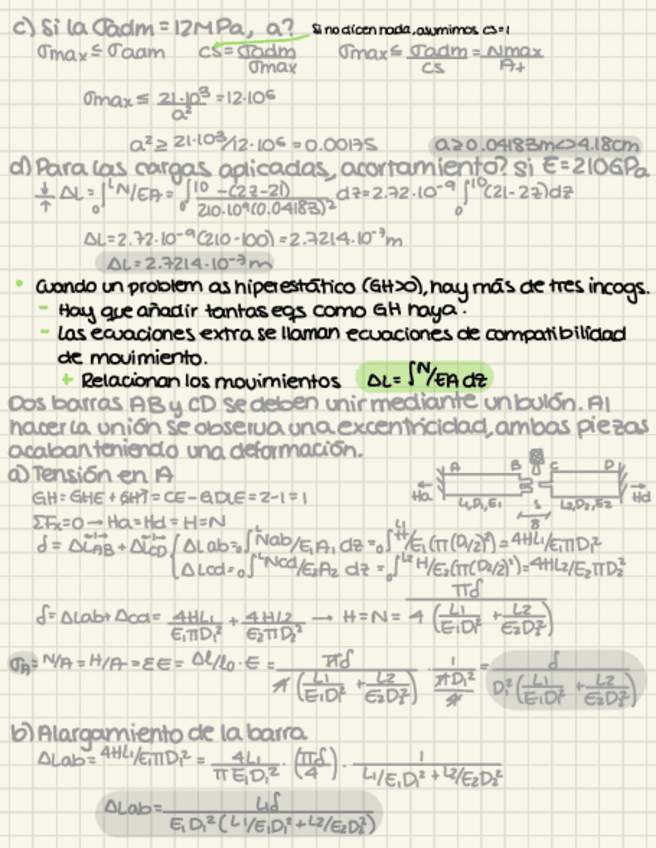 c) Si la σadm = 12MPa, a? Si no dicen nada, asumimos cs=1
σmax ≤ σadm cs = σadm/σmax σmax ≤ σadm/cs = Nmax/A+
σmax ≤ 21·10³/a² = 12·10⁶
a² ≥ 21·10³/12·10⁶ = 0.00175 a ≥ 0.04183m <> 4.18cm
d) Para las cargas aplicadas, acortamiento? si E=210GPa
ΔL = ₀∫ᴸ N/EA = ₀∫¹⁰ -(2z-21)/210·10⁹(0.04183)² dz = 2.72·10⁻⁹ ₀∫¹⁰ (21-2z)dz
ΔL = 2.72·10⁻⁹(210-100) = 2.7214·10⁻⁷m
ΔL = 2.7214·10⁻⁷m
• Cuando un problem as hiperestático (GH>0), hay más de tres incogs.
- Hay que añadir tantas eqs como GH haya.
- Las ecuaciones extra se llaman ecuaciones de compatibilidad
de movimiento.
+ Relacionan los movimientos ΔL = ∫N/EA dz
Dos barras AB y CD se deben unir mediante un bulón. Al
hacer la unión se observa una excentricidad, ambas piezas
acaban teniendo una deformación.
a) Tensión en A
A B C D
Ha Hd
L1,D1,E1 L2,D2,E2
GH = GHE + GHI = CE - GDLE = 2-1 = 1
ΣFx=0 → Ha = Hd = H = N
δ = ΔLAB + ΔLCD { ΔLab = ₀∫ᴸ Nab/E1A1 dz = ₀∫ᴸ¹ H/E1(π(D1/2)²) = 4HL1/E1πD1²
ΔLcd = ₀∫ᴸ Ncd/E2A2 dz = ₀∫ᴸ² H/E2(π(D2/2)²) = 4HL2/E2πD2²
δ = ΔLab + Δcd = 4HL1/E1πD1² + 4HL2/E2πD2² → H = N = πδ/4(L1/E1D1² + L2/E2D2²)
σA = N/A = H/A = εE = ΔL/L0·E = πδ/4(L1/E1D1² + L2/E2D2²) · 1/πD1²/4 = δ/D1²(L1/E1D1² + L2/E2D2²)
b) Alargamiento de la barra
ΔLab = 4HL1/E1πD1² = 4L1/πE1D1² · (πδ/4) · 1/L1/E1D1² + L2/E2D2²
ΔLab = L1δ/E1D1²(L1/E1D1² + L2/E2D2²)